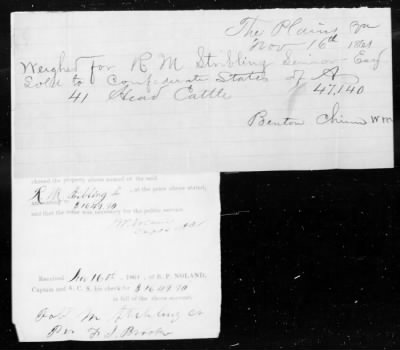 The Plains Va
Nov 16th 1861
Weighed for R M Stribling Senior Esq
Sold to Confederate States of A
41 Head Cattle 47,140
Benton Chinn W M
chased the property above named of the said
R M Stribling, at the price above stated,
$1649.90
and that the same was necessary for the public service.
Received Nov 16th, 1861, of B. P. NOLAND,
Captain and A. C. S. his check for $1649.90
in full of the above account.
Rob M Stribling
Per